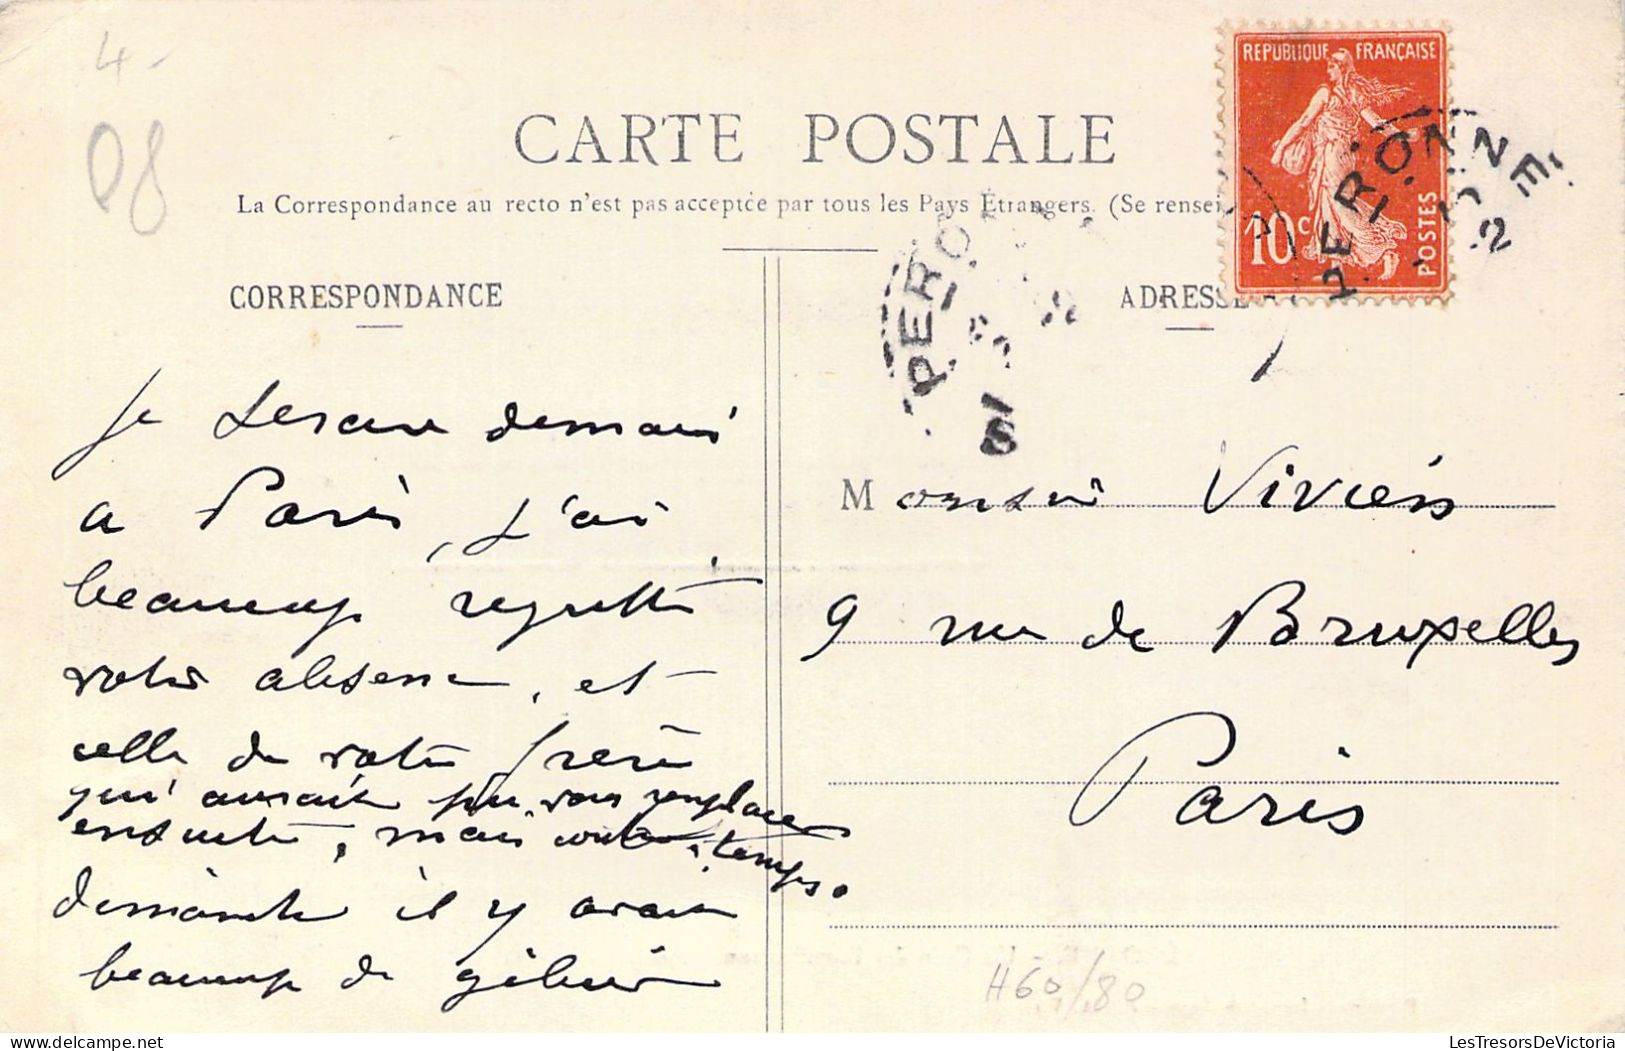 4-
08
REPUBLIQUE FRANÇAISE
10c
POSTES
PERONNE
CARTE POSTALE
La Correspondance au recto n'est pas acceptée par tous les Pays Étrangers. (Se rensei
PERO
CORRESPONDANCE
ADRESSE
Je serai demain
a Paris, j'ai
beaucoup regretté
votre absence, et
celle de votre frère
qui aurait pu vous remplacer
ensuite, mais temps.
dimanche il y avait
beaucoup de gibier
Monsieur Viviers
9 rue de Bruxelles
Paris
H60/80
LesTresorsDeVictoria